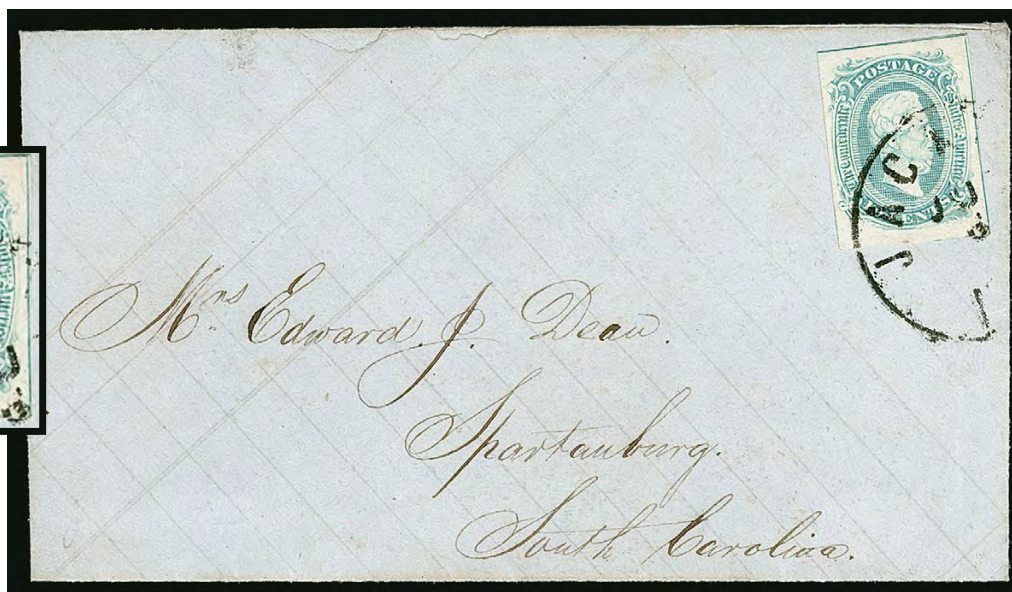 POSTAGE
Mrs Edward J. Dean.
Spartanburg.
South Carolina.